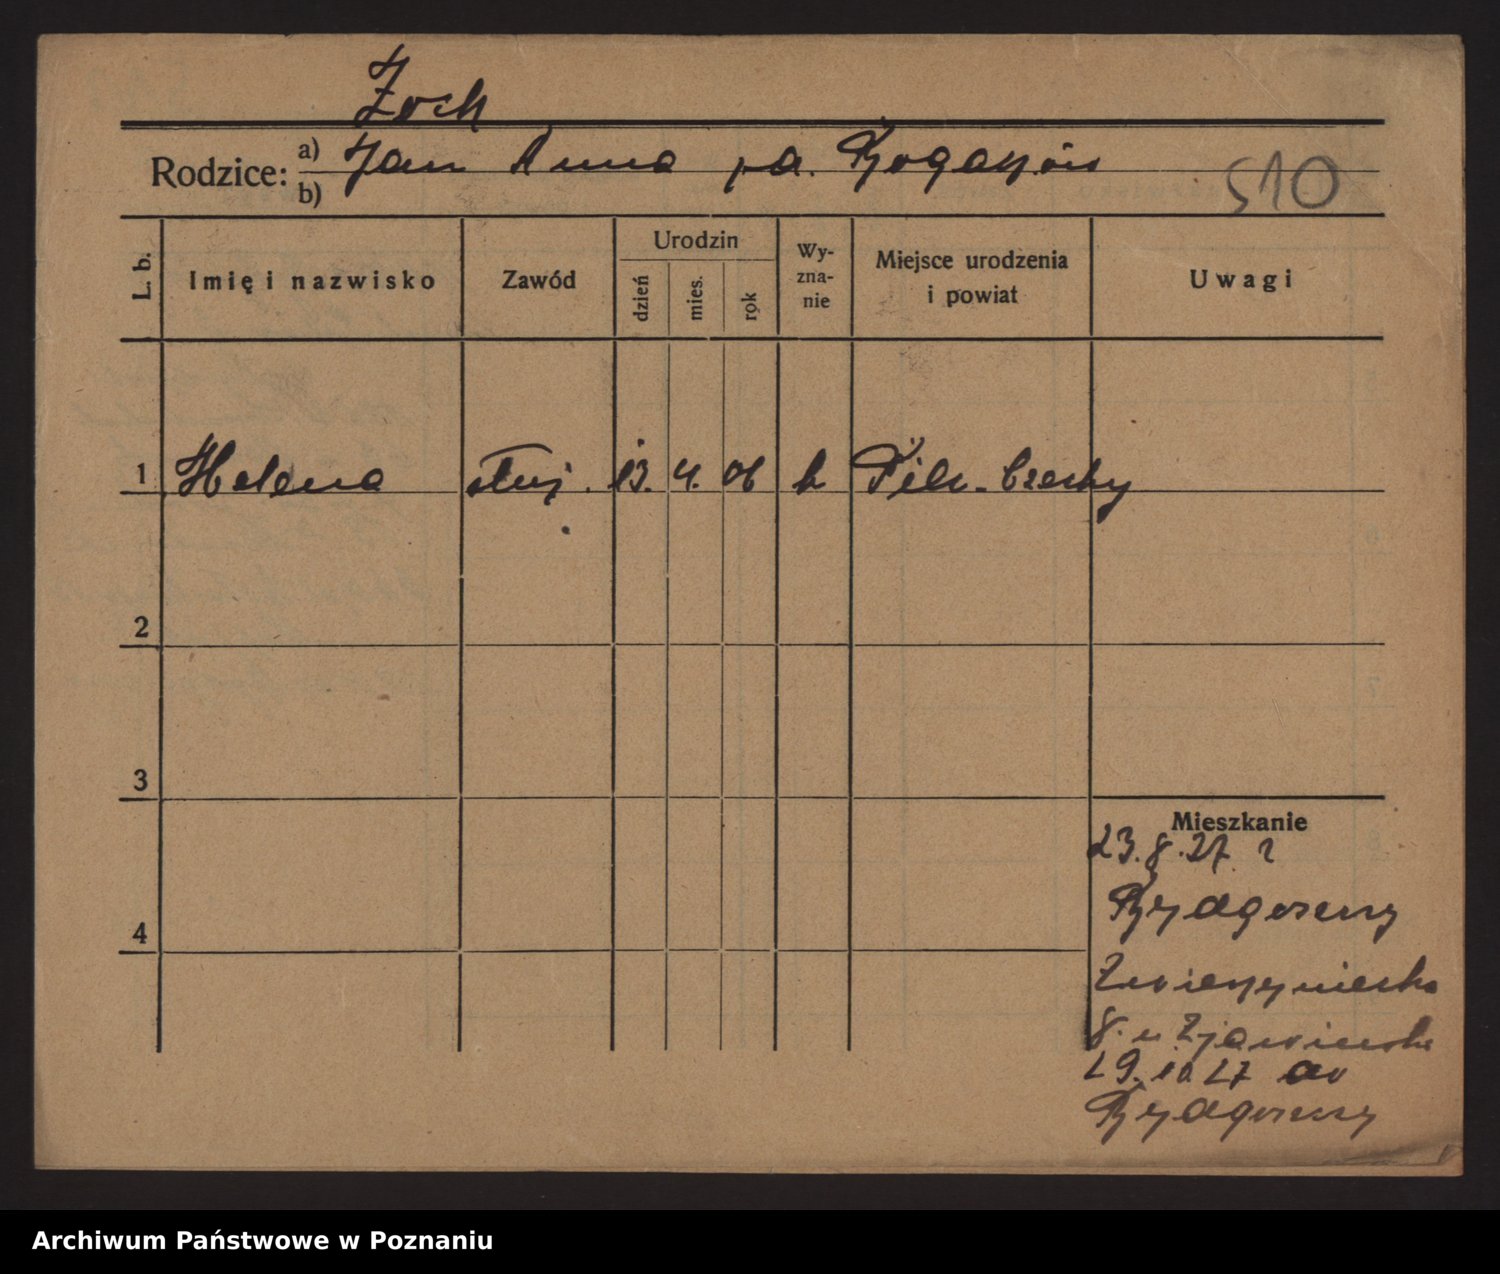 Zoch
Rodzice: a) Jan Anna
b)
510
L. b.
Imię i nazwisko
Zawód
Urodzin
dzień
mies.
rok
Wy-
zna-
nie
Miejsce urodzenia
i powiat
Uwagi
1 Helena służ. 13. 4. 06 k Czechy
2
3
4
Mieszkanie
23. 8. 27 z
Bydgoszczy
Zwierzyniecka
8. u
29. 10 27 do
Bydgoszczy
Archiwum Państwowe w Poznaniu